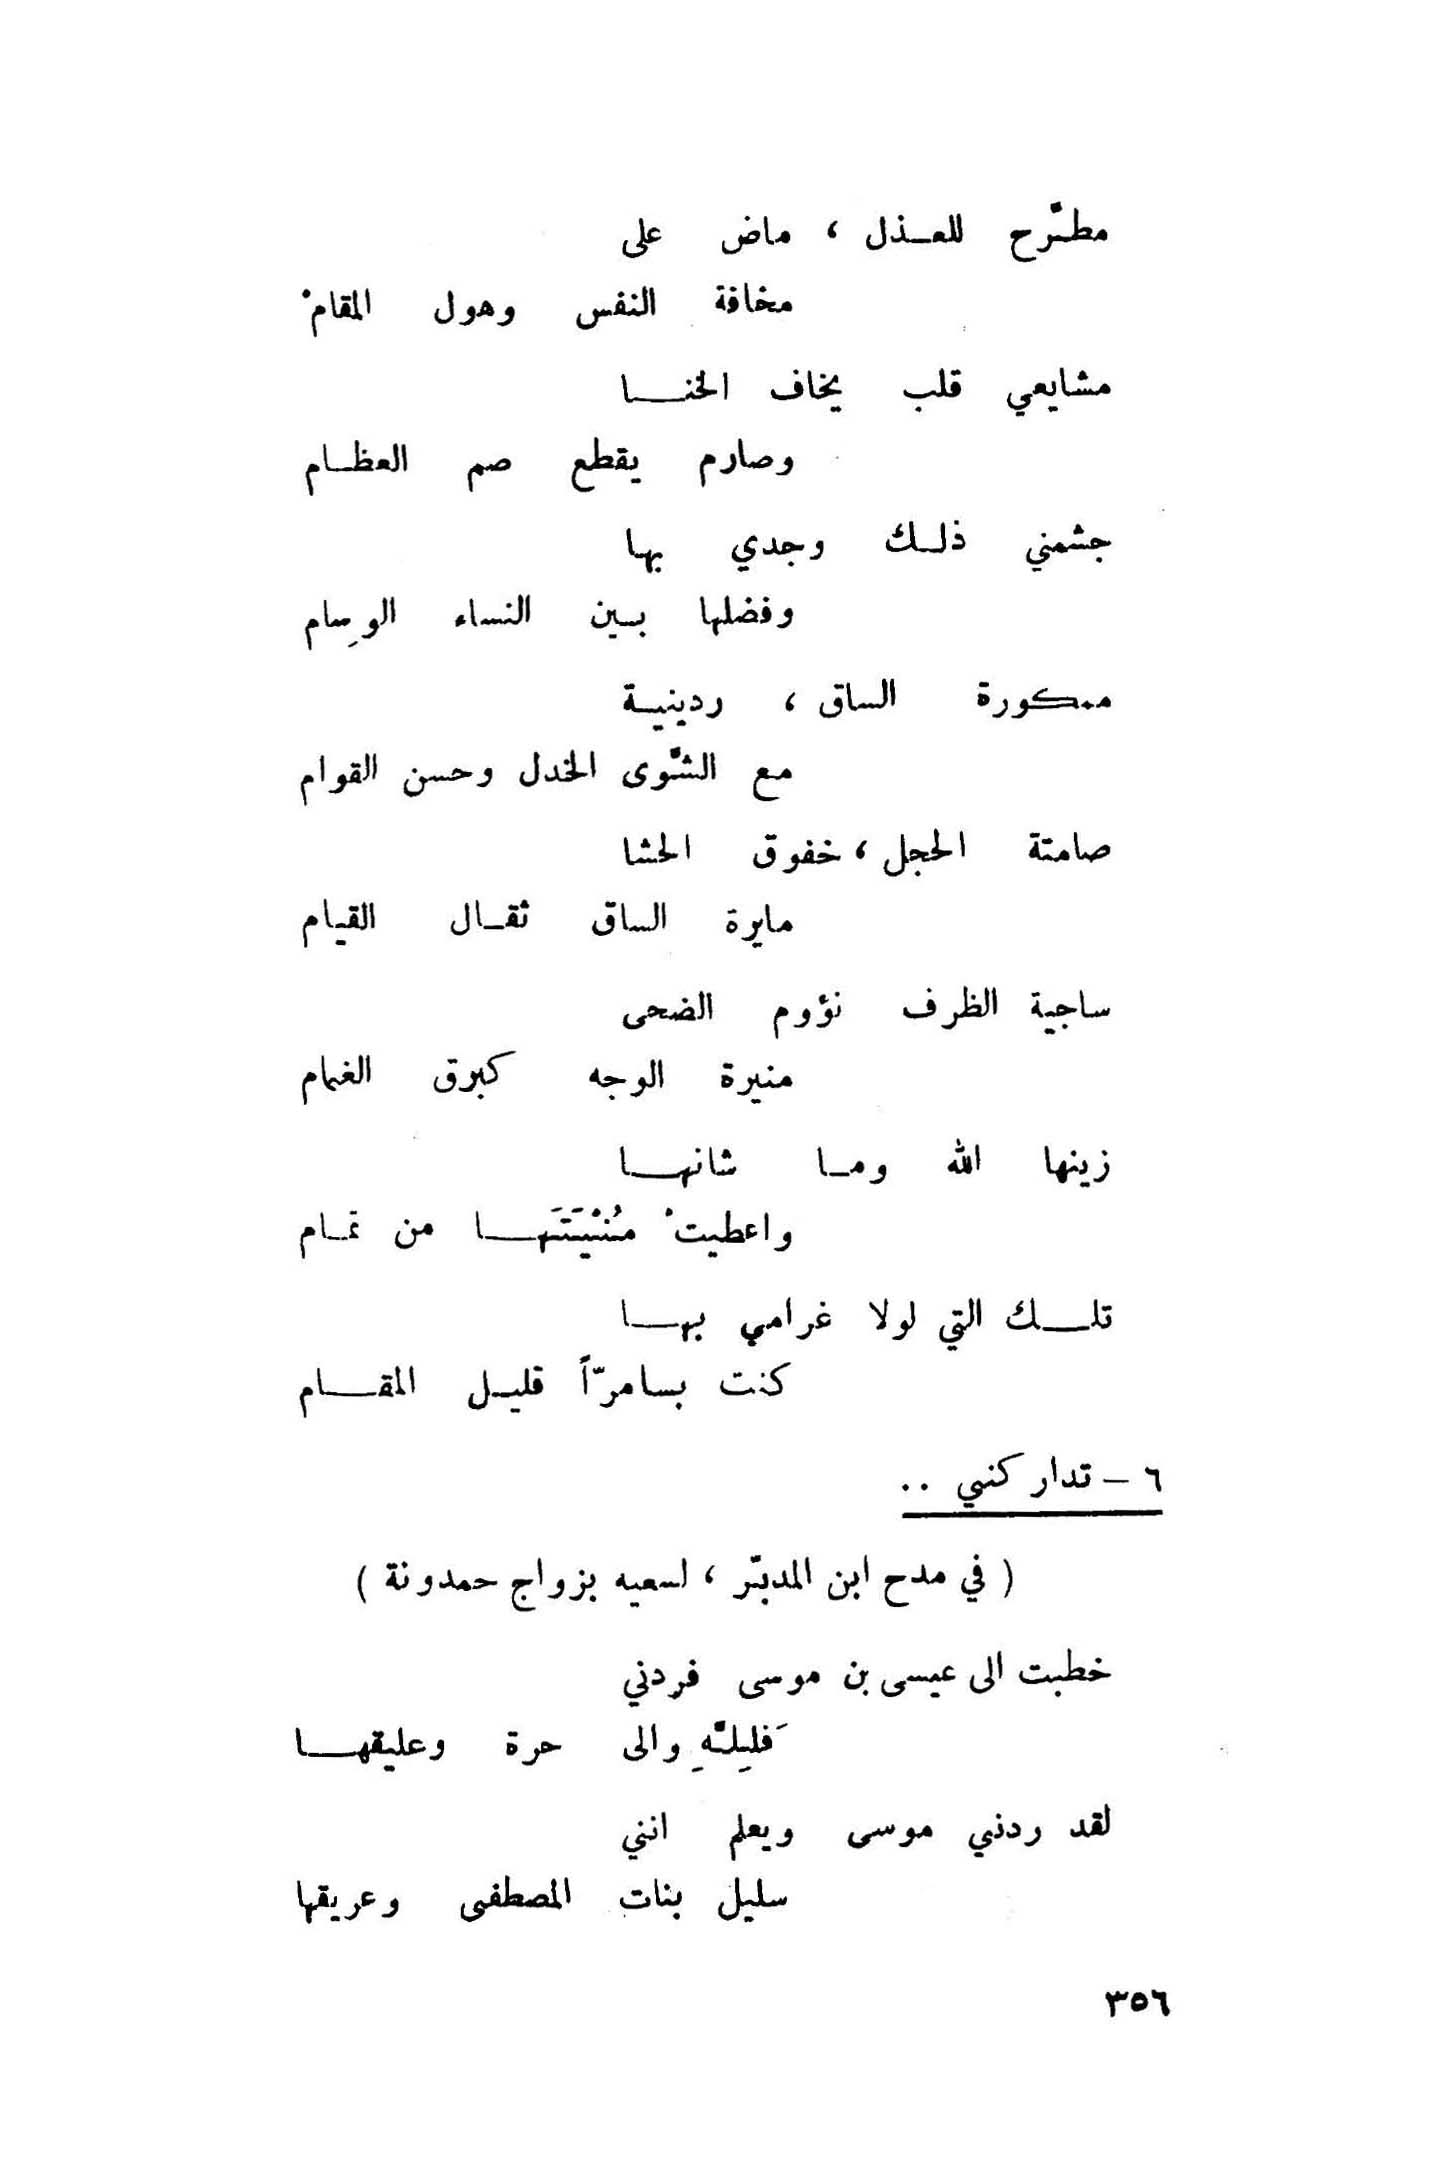 مطّرح للعـذل ، ماض على
مخافة النفس وهول المقامْ
مشايعي قلب يخاف الخنـا
وصارم يقطع صم العظـام
جشمني ذلـك وجدي بهـا
وفضلها بـين النساء الوِسام
ممكورة الساق ، ردينيـة
مع الشَّوى الخدل وحسن القوام
صامتة الحجل ، خفوق الحشا
مايرة الساق ثقـال القيام
ساجية الظرف نؤوم الضحى
منيرة الوجه كبرق الغمام
زينها الله ومـا شانهـا
واعطيتْ مُنْيَتَهـا من تمـام
تلـك التي لولا غرامي بهـا
كنت بسامرّاً قليـل المقـام
٦ - تداركنـي ..
( في مدح ابن المدبّر ، لسعيه بزواج حمدونة )
خطبت الى عيسى بن موسى فردني
فَلِلّهِ والى حرة وعليقهـا
لقد ردني موسى ويعلم انني
سليل بنات المصطفى وعريقها
٣٥٦